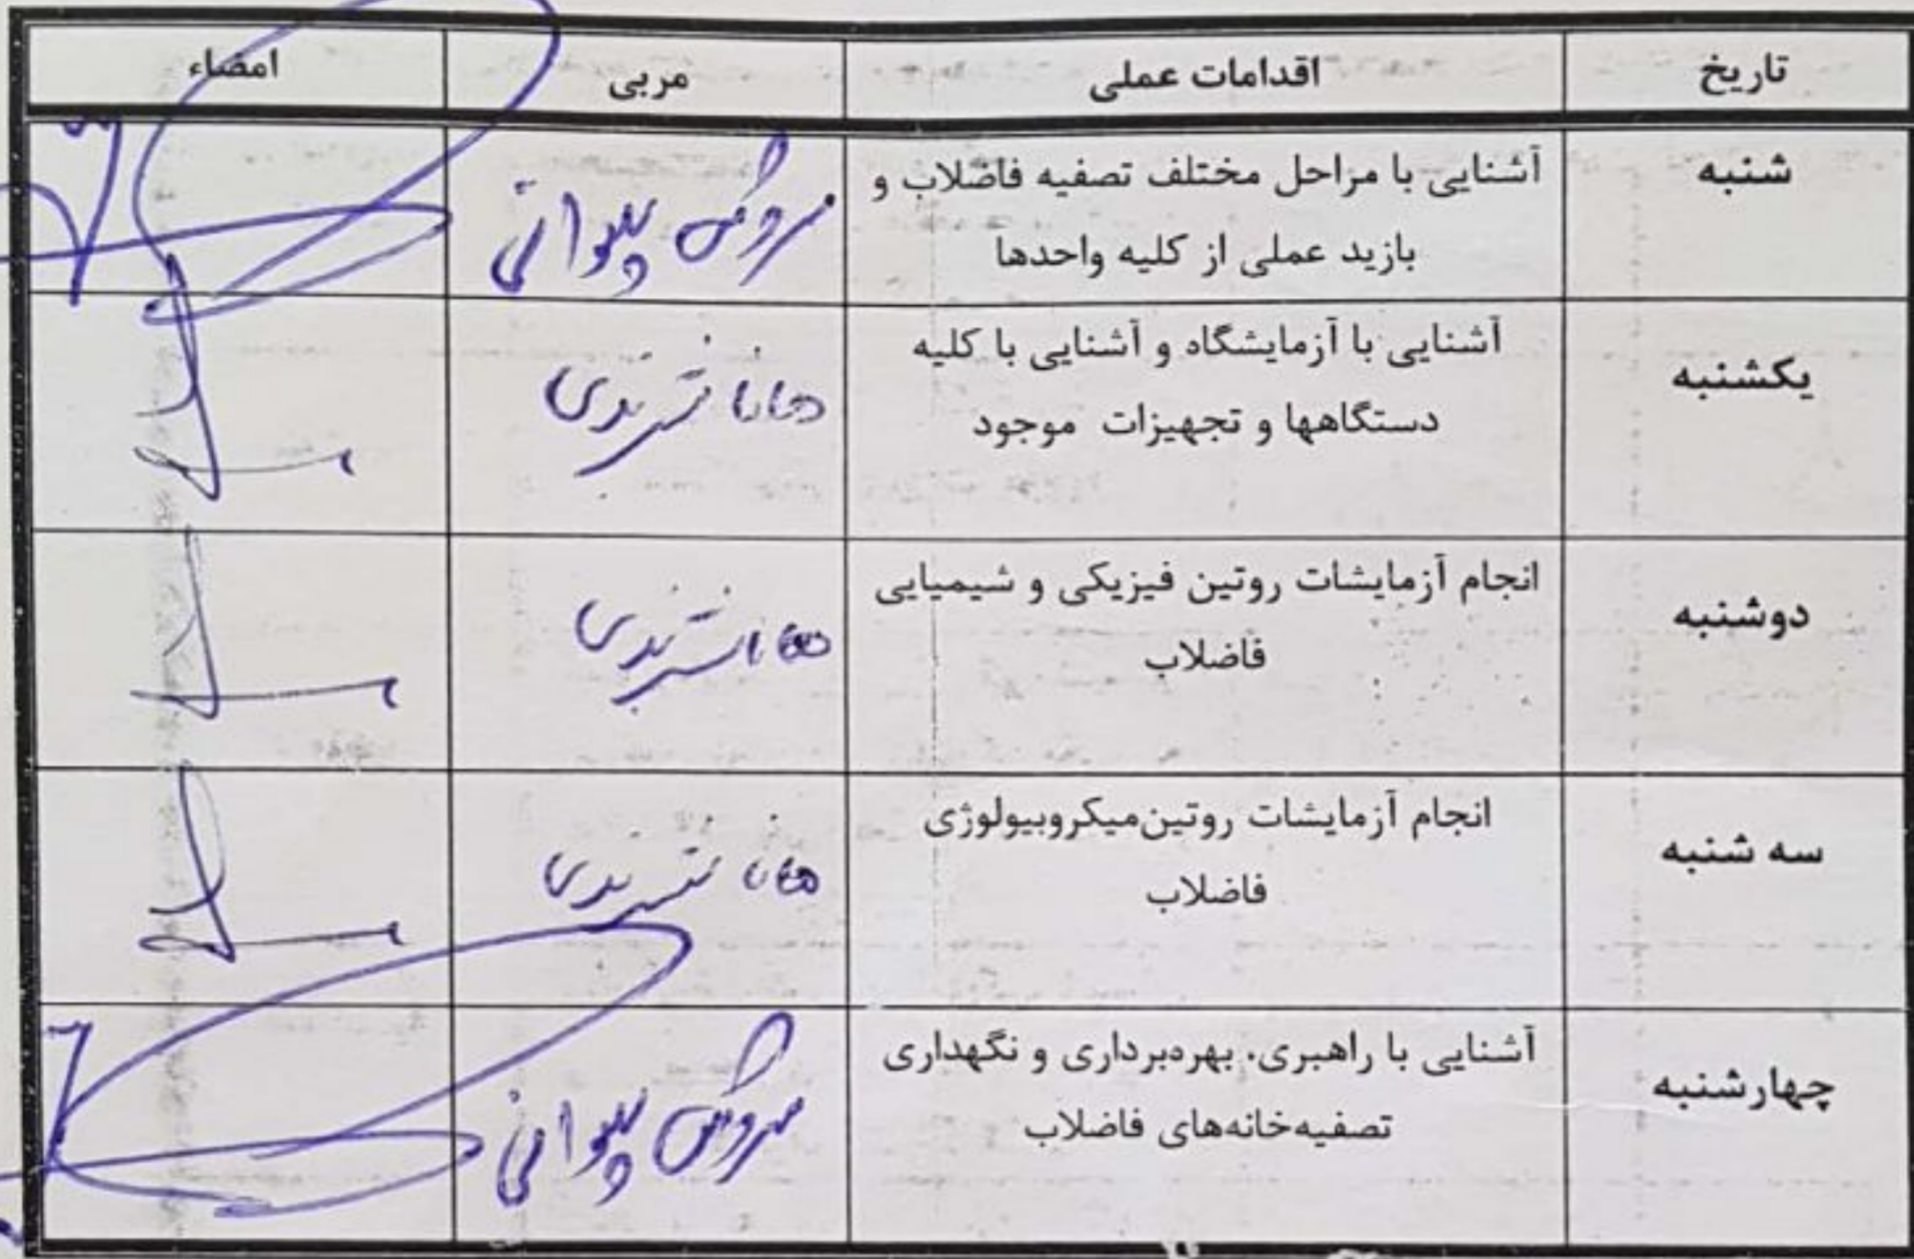 تاریخ اقدامات عملی مربی امضاء
شنبه
آشنایی با مراحل مختلف تصفیه فاضلاب و
بازید عملی از کلیه واحدها
سروش
یکشنبه
آشنایی با آزمایشگاه و آشنایی با کلیه
دستگاهها و تجهیزات موجود
دوشنبه
انجام آزمایشات روتین فیزیکی و شیمیایی
فاضلاب
سه شنبه
انجام آزمایشات روتین‌میکروبیولوژی
فاضلاب
چهارشنبه
آشنایی با راهبری، بهره‌برداری و نگهداری
تصفیه‌خانه‌های فاضلاب
سروش